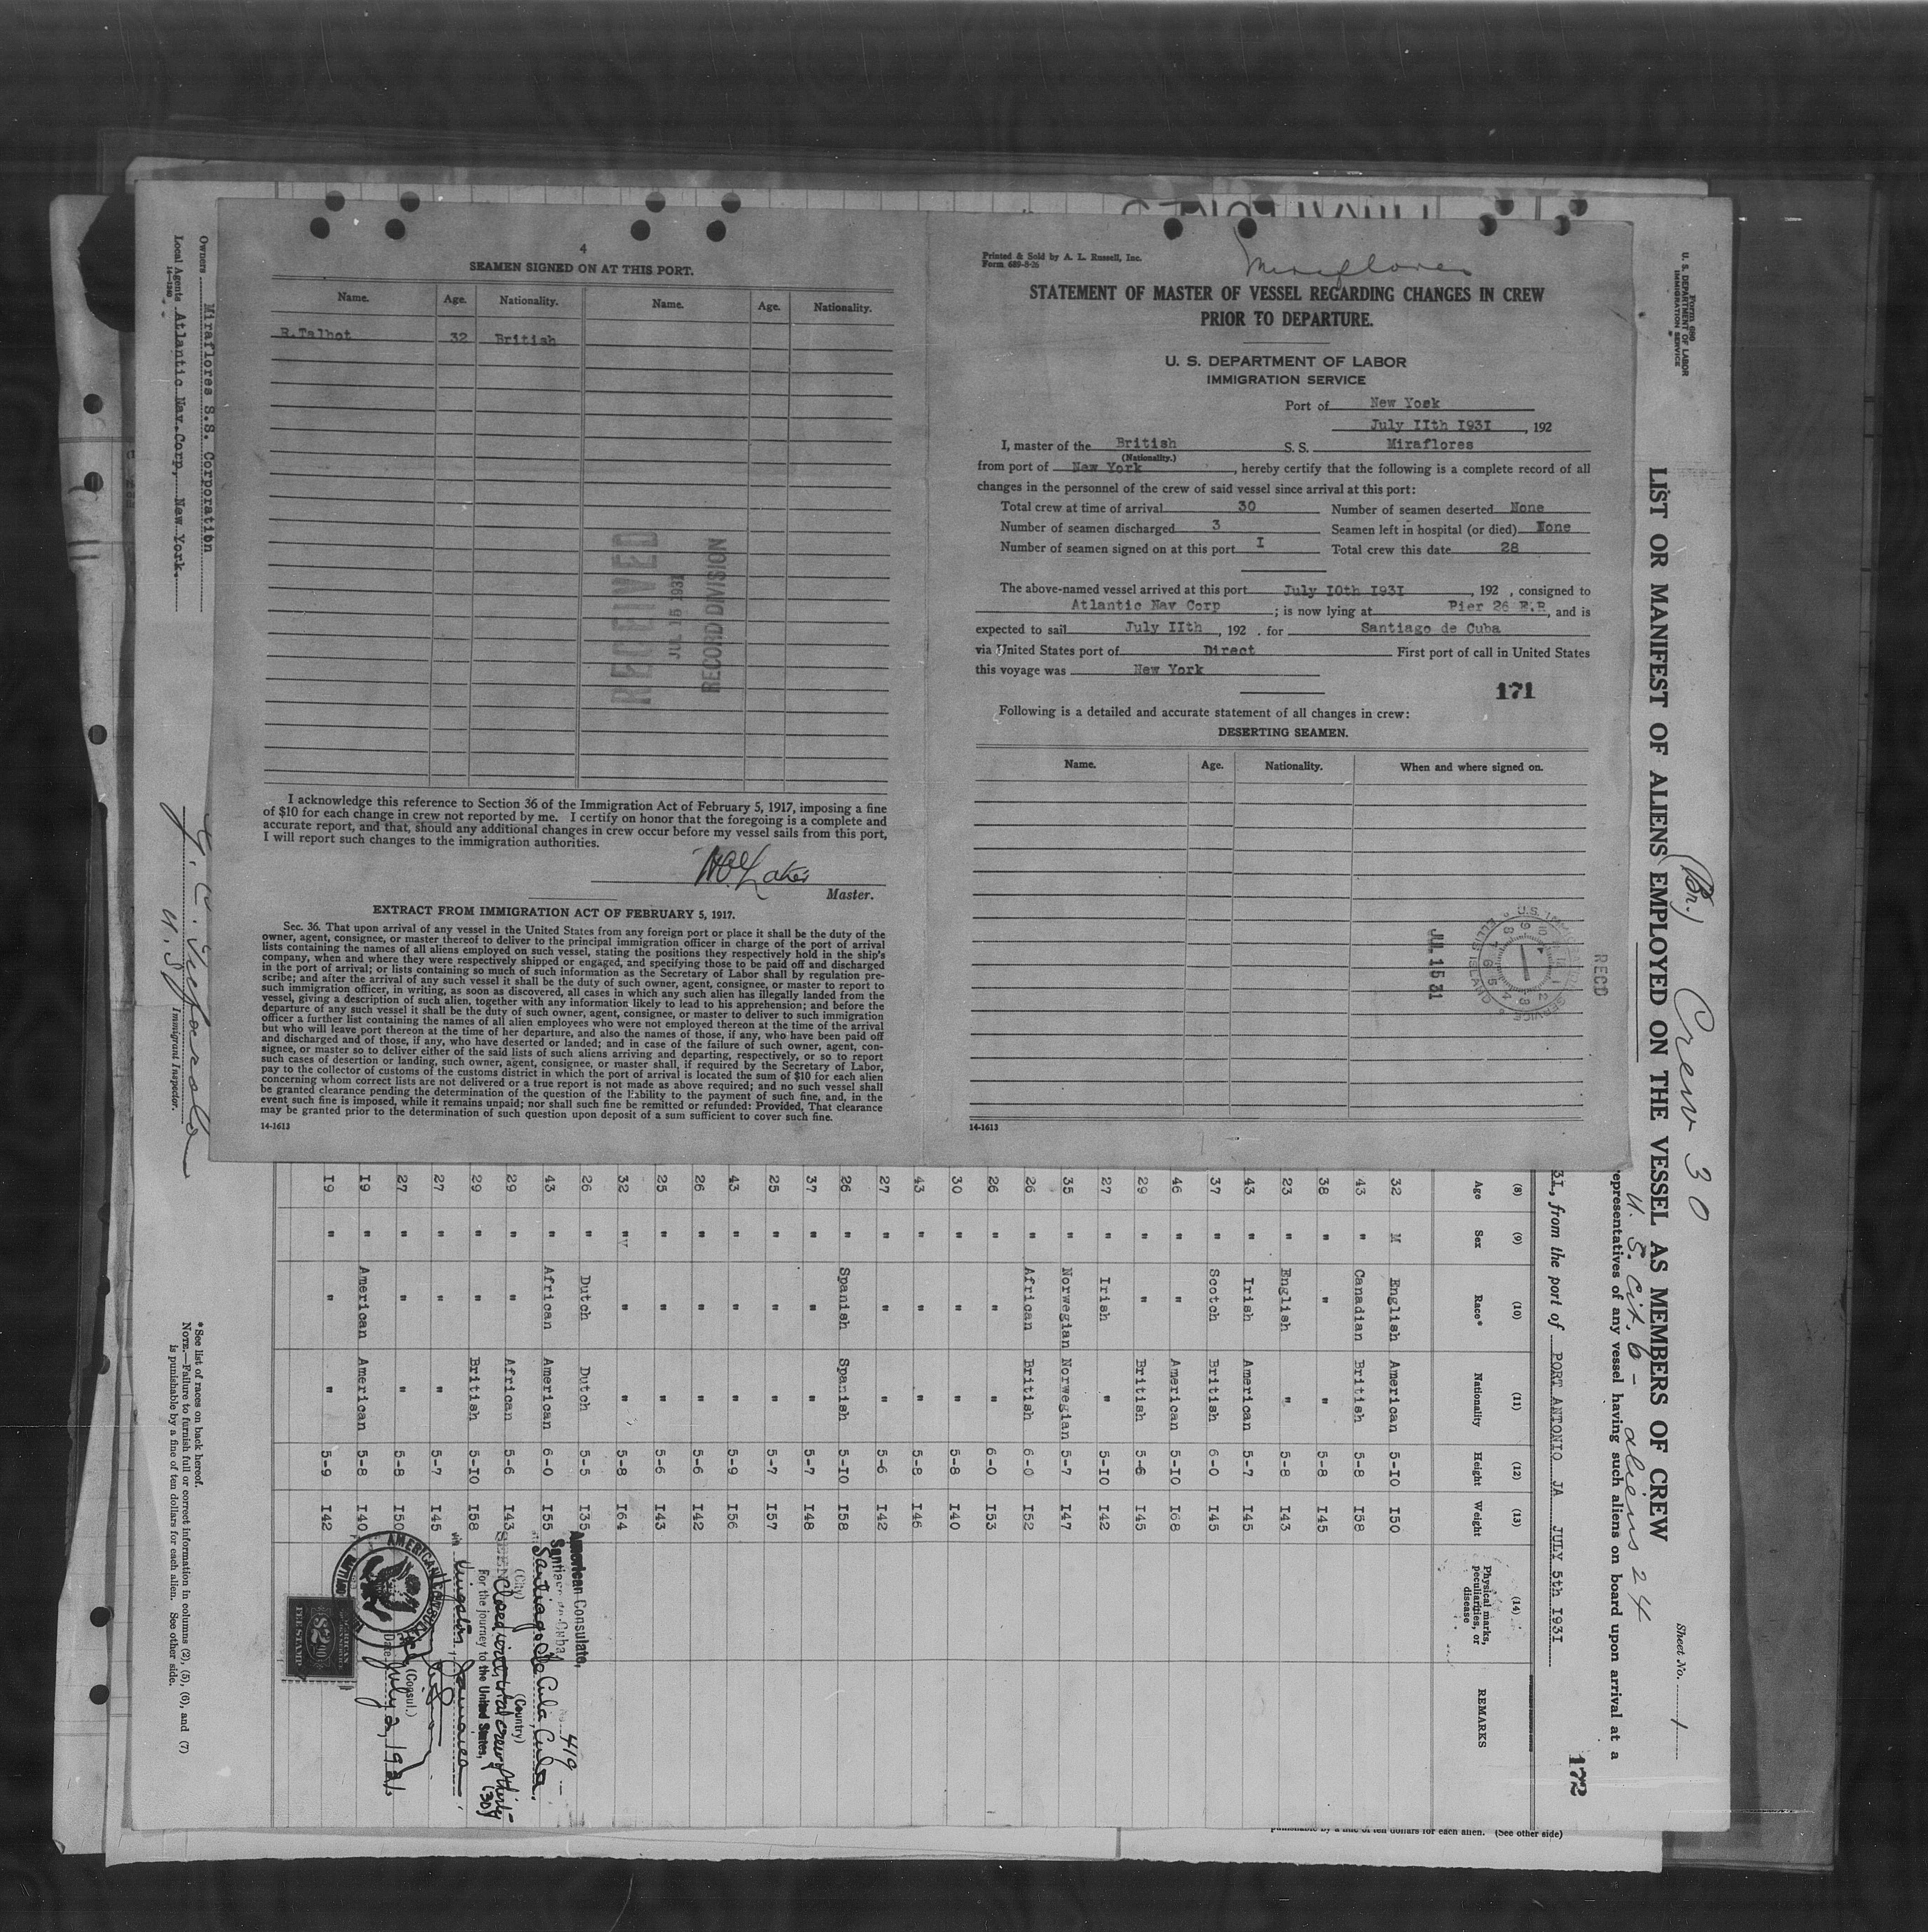 4
SEAMEN SIGNED ON AT THIS PORT.
Name. Age. Nationality. Name. Age. Nationality.
R.Talbot 32 British
RECEIVED
JUL 15 1931
RECORD DIVISION
I acknowledge this reference to Section 36 of the Immigration Act of February 5, 1917, imposing a fine
of $10 for each change in crew not reported by me. I certify on honor that the foregoing is a complete and
accurate report, and that, should any additional changes in crew occur before my vessel sails from this port,
I will report such changes to the immigration authorities.
Master.
EXTRACT FROM IMMIGRATION ACT OF FEBRUARY 5, 1917.
Sec. 36. That upon arrival of any vessel in the United States from any foreign port or place it shall be the duty of the
owner, agent, consignee, or master thereof to deliver to the principal immigration officer in charge of the port of arrival
lists containing the names of all aliens employed on such vessel, stating the positions they respectively hold in the ship's
company, when and where they were respectively shipped or engaged, and specifying those to be paid off and discharged
in the port of arrival; or lists containing so much of such information as the Secretary of Labor shall by regulation pre-
scribe; and after the arrival of any such vessel it shall be the duty of such owner, agent, consignee, or master to report to
such immigration officer, in writing, as soon as discovered, all cases in which any such alien has illegally landed from the
vessel, giving a description of such alien, together with any information likely to lead to his apprehension; and before the
departure of any such vessel it shall be the duty of such owner, agent, consignee, or master to deliver to such immigration
officer a further list containing the names of all alien employees who were not employed thereon at the time of the arrival
but who will leave port thereon at the time of her departure, and also the names of those, if any, who have been paid off
and discharged and of those, if any, who have deserted or landed; and in case of the failure of such owner, agent, con-
signee, or master so to deliver either of the said lists of such aliens arriving and departing, respectively, or so to report
such cases of desertion or landing, such owner, agent, consignee, or master shall, if required by the Secretary of Labor,
pay to the collector of customs of the customs district in which the port of arrival is located the sum of $10 for each alien
concerning whom correct lists are not delivered or a true report is not made as above required; and no such vessel shall
be granted clearance pending the determination of the question of the liability to the payment of such fine, and, in the
event such fine is imposed, while it remains unpaid; nor shall such fine be remitted or refunded: Provided, That clearance
may be granted prior to the determination of such question upon deposit of a sum sufficient to cover such fine.
14-1613
Printed & Sold by A. L. Russell, Inc.
Form 689-8-26
Miraflores
STATEMENT OF MASTER OF VESSEL REGARDING CHANGES IN CREW
PRIOR TO DEPARTURE.
U. S. DEPARTMENT OF LABOR
IMMIGRATION SERVICE
Port of New York
July IIth I93I , 192
I, master of the British S. S. Miraflores
(Nationality.)
from port of New York , hereby certify that the following is a complete record of all
changes in the personnel of the crew of said vessel since arrival at this port:
Total crew at time of arrival 30 Number of seamen deserted None
Number of seamen discharged 3 Seamen left in hospital (or died) None
Number of seamen signed on at this port I Total crew this date 28
The above-named vessel arrived at this port July I0th I93I , 192 , consigned to
Atlantic Nav Corp ; is now lying at Pier 26 E.R , and is
expected to sail July IIth , 192 . for Santiago de Cuba
via United States port of Direct First port of call in United States
this voyage was New York
171
Following is a detailed and accurate statement of all changes in crew:
DESERTING SEAMEN.
Name. Age. Nationality. When and where signed on.
U.S. IMMIGRATION SERVICE ELLIS ISLAND
JUL 15 31
RECD
14-1613
Form 680
U. S. DEPARTMENT OF LABOR
IMMIGRATION SERVICE
(Br.) Crew 30
Sheet No. 1
LIST OR MANIFEST OF ALIENS EMPLOYED ON THE VESSEL AS MEMBERS OF CREW
U. S. Cit. 6 - aliens 24
representatives of any vessel having such aliens on board upon arrival at a
172
31, from the port of PORT ANTONIO JA JULY 5th I93I
(8) (9) (10) (11) (12) (13) (14)
Age Sex Race* Nationality Height Weight Physical marks, peculiarities, or disease REMARKS
32 M English American 5-I0 I50
43 " Canadian British 5-8 I58
38 " " " 5-8 I45
23 " English " 5-8 I43
43 " Irish American 5-7 I45
37 " Scotch British 6-0 I45
46 " " American 5-I0 I68
29 " " British 5-6 I45
27 " Irish " 5-I0 I42
35 " Norwegian Norwegian 5-7 I47
26 " African British 6-0 I52
26 " " " 6-0 I53
30 " " " 5-8 I40
43 " " " 5-8 I46
27 " " " 5-6 I42
26 " Spanish Spanish 5-I0 I58
37 " " " 5-7 I48
25 " " " 5-7 I57
43 " " " 5-9 I56
26 " " " 5-6 I42
25 " " " 5-6 I43
32 " " " 5-8 I64
26 " Dutch Dutch 5-5 I35
43 " African American 6-0 I55
29 " " African 5-6 I43
29 " " British 5-I0 I58
27 " " " 5-7 I45
27 " " " 5-8 I50
I9 " American American 5-8 I40
I9 " " " 5-9 I42
American Consulate,
Santiago de Cuba, Cuba.
No. 419
(City) (Country)
SEEN
total crew thirty (30)
For the journey to the United States,
via Kingston Jamaica
(Consul.)
Date July 2, 1931
AMERICAN CONSULATE
$2.00
FEE STAMP
Owners Miraflores S.S. Corporation
Local Agents Atlantic Nav.Corp, New York.
14-1240
U. S.
Immigrant Inspector.
* See list of races on back hereof.
NOTE.—Failure to furnish full or correct information in columns (2), (5), (6), and (7)
is punishable by a fine of ten dollars for each alien. See other side.
punishable by a fine of ten dollars for each alien. (See other side)